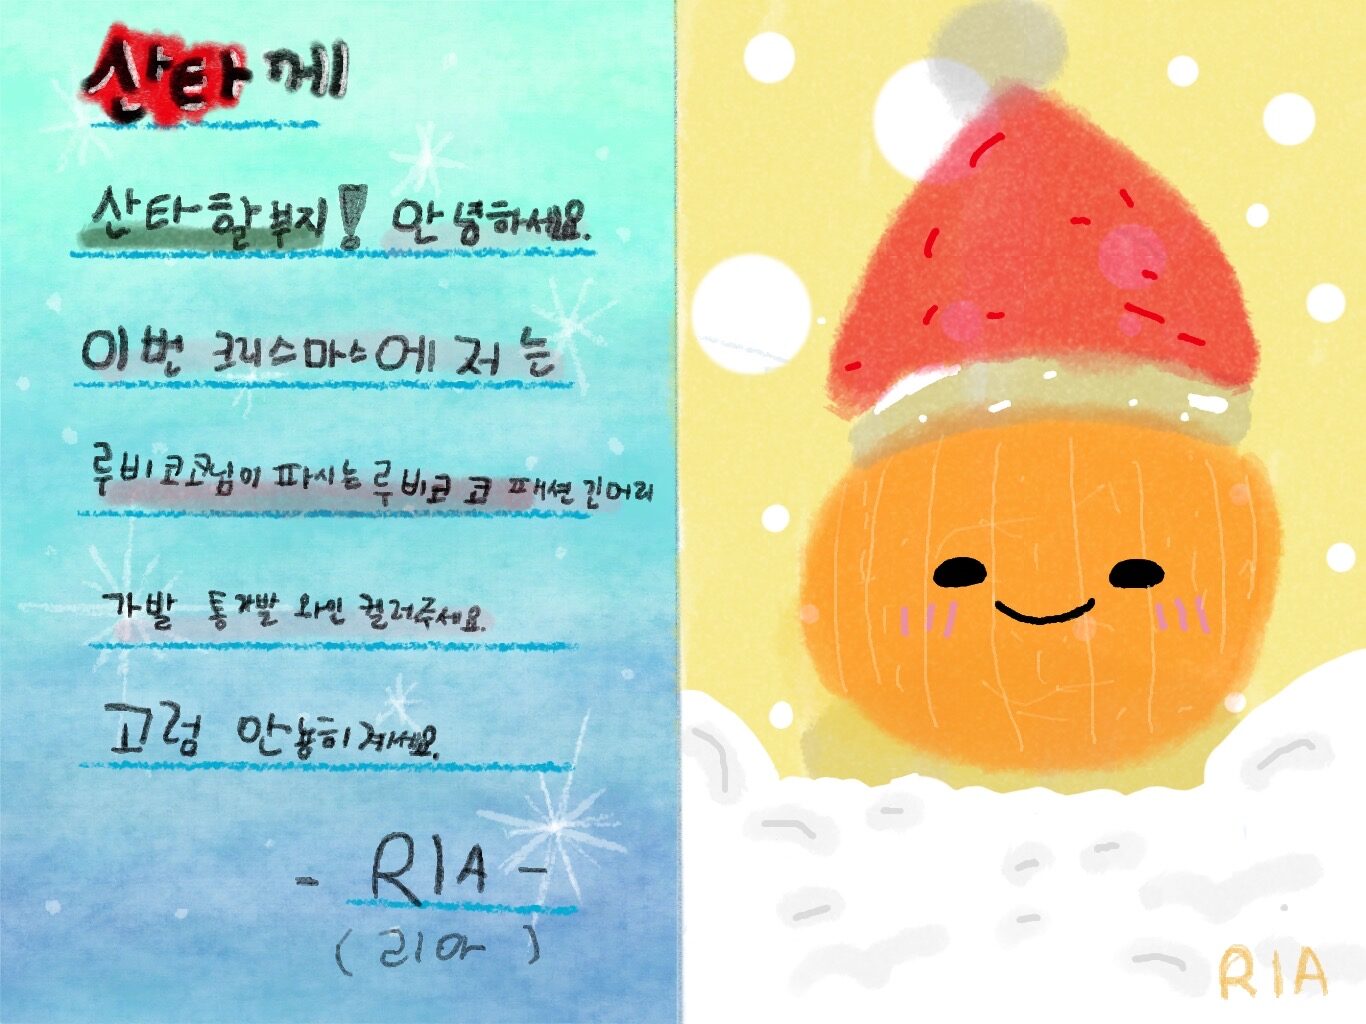 산타께
산타할부지! 안녕하세요.
이번 크리스마스에 저는
루비코코님이 파시는 루비코코 패션 긴머리
가발 통가발 와인 컬러주세요.
고럼 안뇽히계세요.
- RIA -
(리아)
RIA